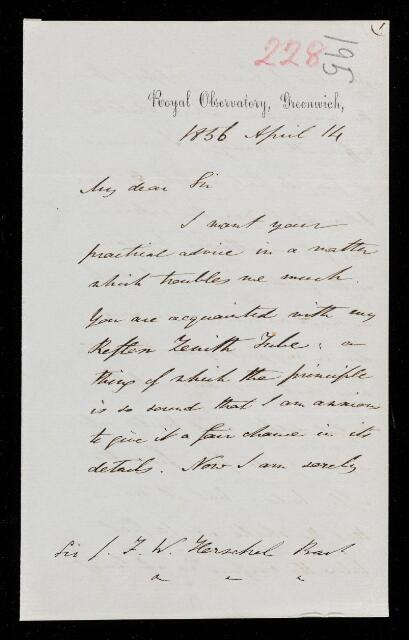 1
195
228
Royal Observatory, Greenwich,
1856 April 14
My dear Sir
I want your
practical advice in a matter
which troubles me much.
You are acquainted with my
Reflex Zenith Tube: a
thing of which the principle
is so sound that I am anxious
to give it a fair chance in its
details. Now I am sorely
Sir J. F. W. Herschel Bart